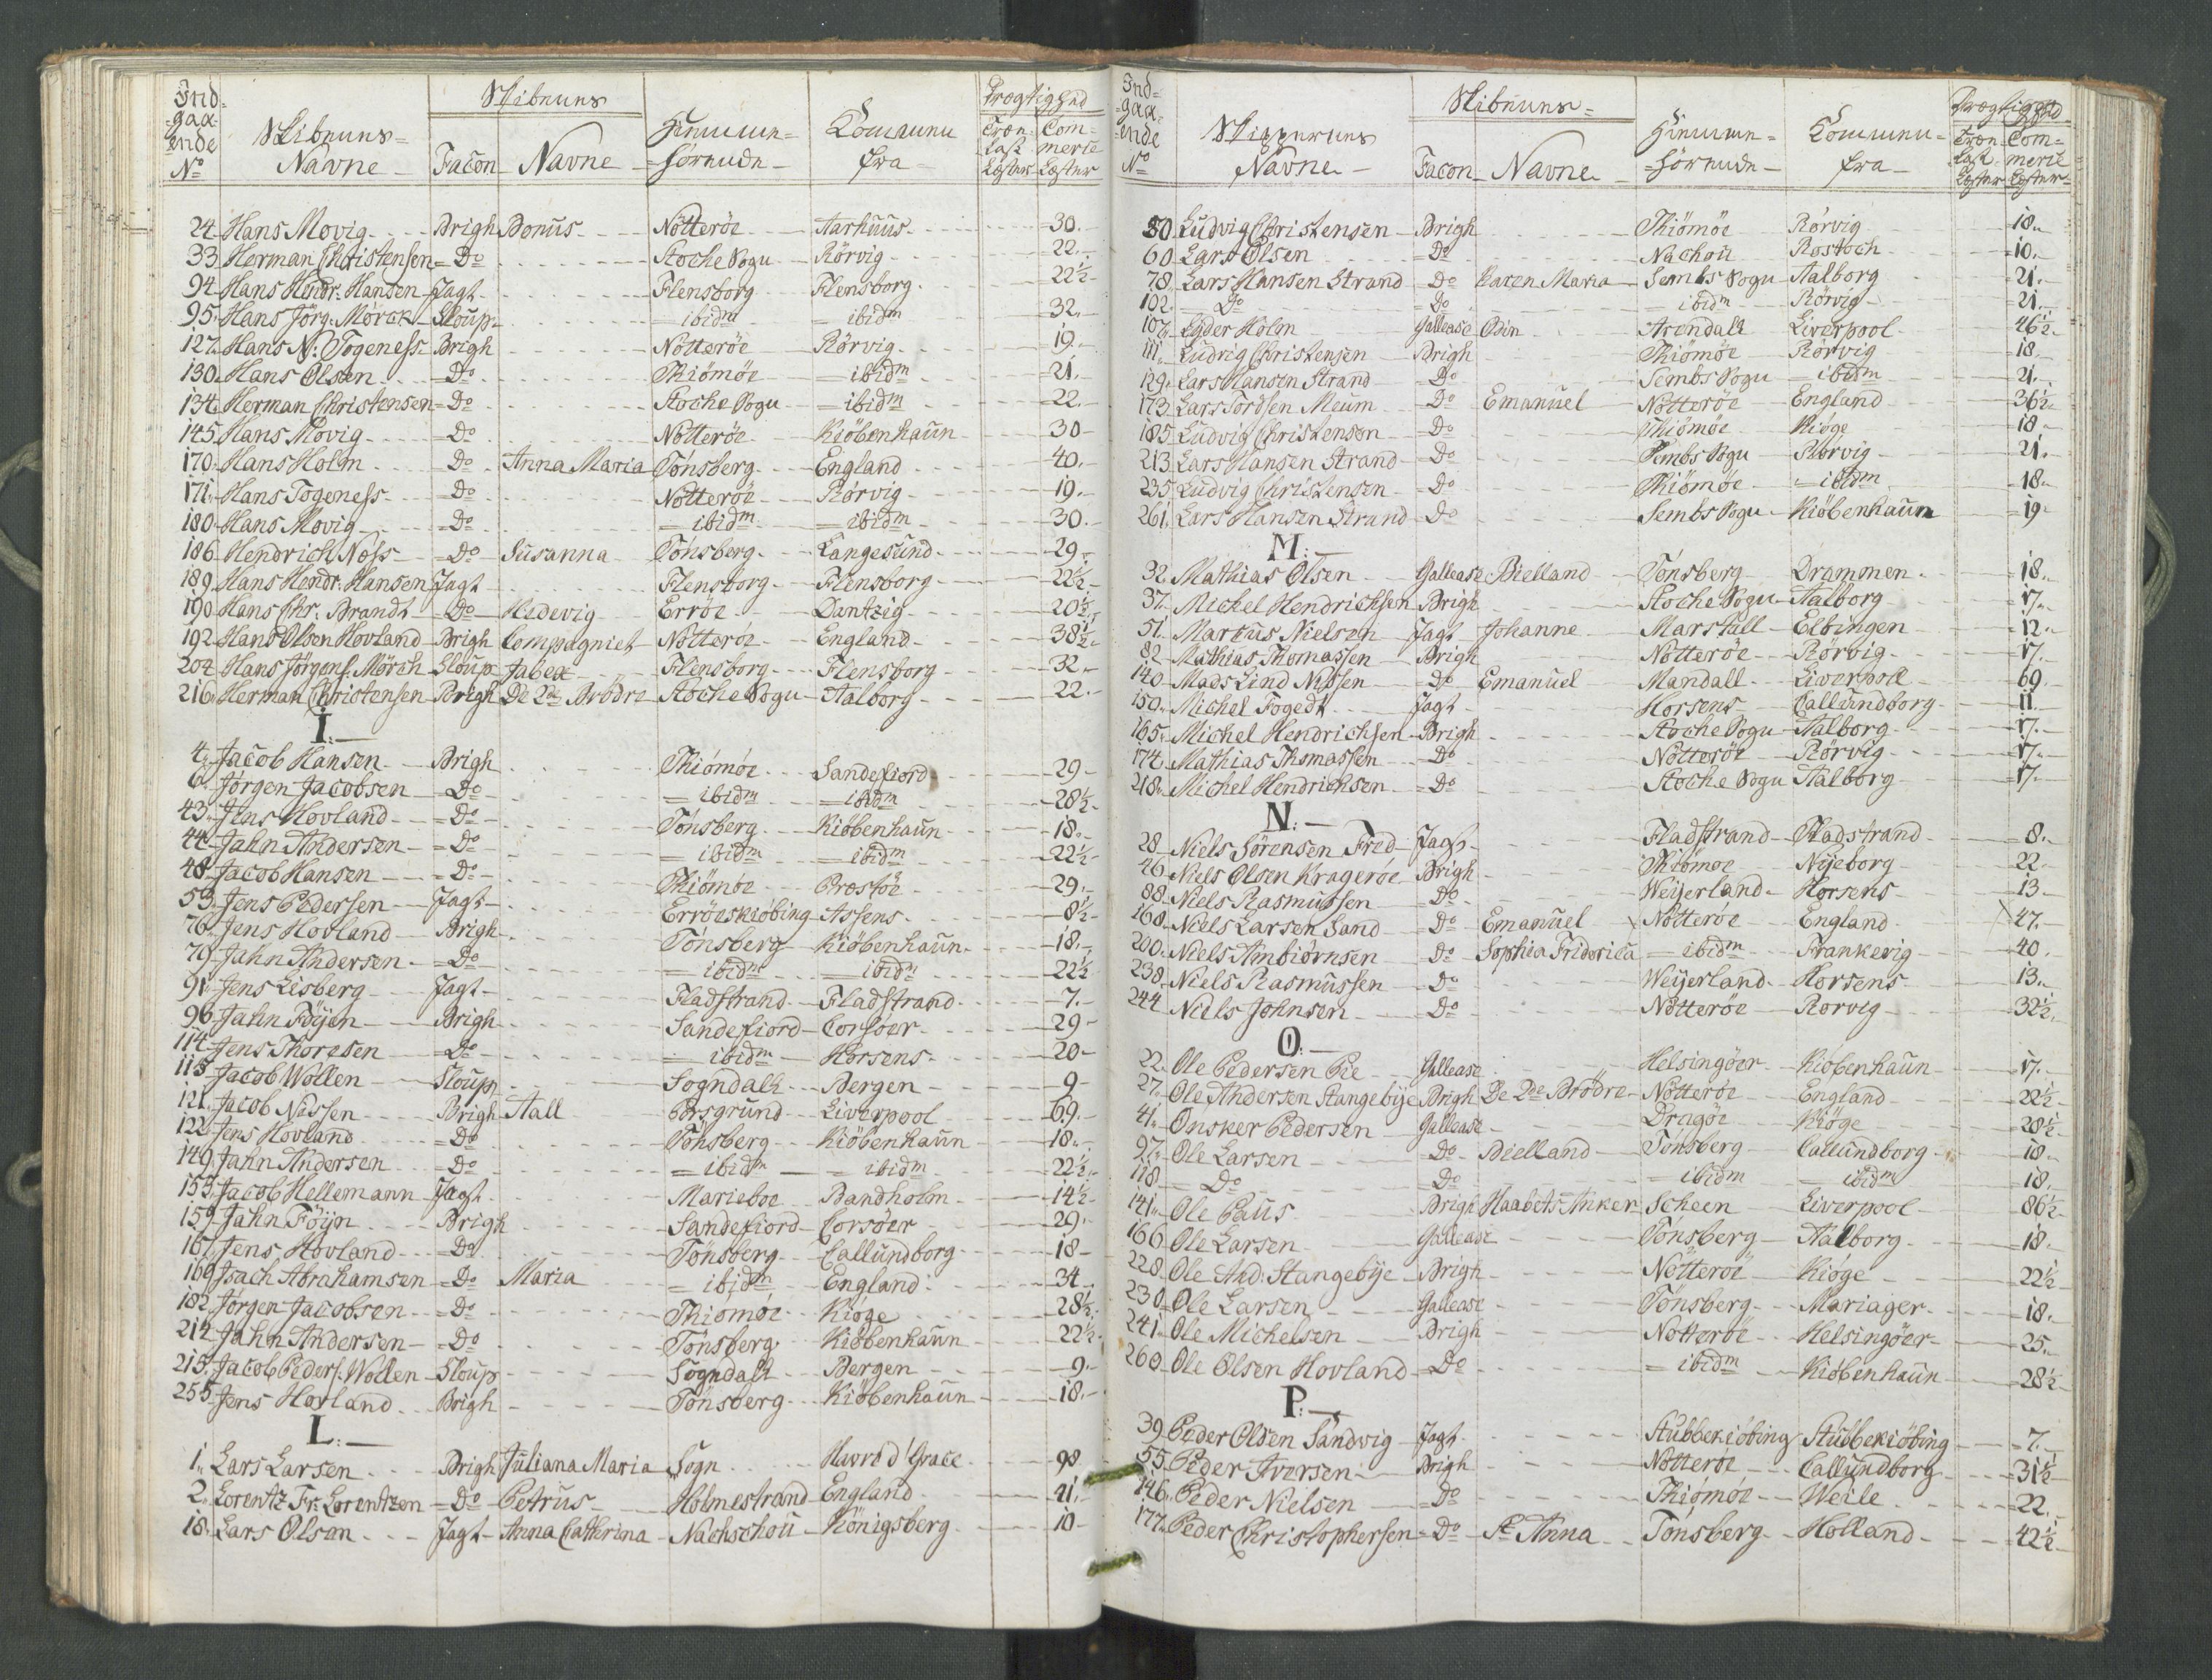 Ind=
gaa=
ende
No
Skibnuns=
Navne
Skibnuns
Facon
Navne
Hiemme=
hörende
Kommen
fra
Drægtighed
Træ=
Last
Læster
Com=
merce
Læster
24 Hans Movig Brigh Bonus Nötteröe Aarhuus 30.
33 Herman Christensen Do Stoche Sogn Rörvig 22.
94 Hans Hendr: Hansen Jagt Flensborg Flensborg 22½
95 Hans Jörg: Mörck Sloup ibidm ibidm 32.
127 Hans N: Togeness Brigh Nötteröe Rörvig 19.
130 Hans Olsen Do Thiömöe ibidm 21.
134 Herman Christensen Do Stoche Sogn ibidm 22.
145 Hans Movig Do Nötteröe Kiöbenhaun 30
170 Hans Holm Do Anna Maria Tönsberg England 40.
171 Hans Togeness Do Nötteröe Rörvig 19.
180 Hans Movig Do ibidm ibidm 30.
186 Hendrich Noss Do Susanna Tönsberg Langesund 29.
189 Hans Hendr: Hansen Jagt Flensborg Flensborg 22½
190 Hans Chr. Brandt Do Hedevig Erröe Dantzig 20½
192 Hans Olsen Hovland Brigh Compagniet Nötteröe England 38½
204 Hans Jörgens. Mörch Sloup Jabex Flensborg Flensborg 32.
216 Herman Christensen Brigh De 2de Brödre Stoche Sogn Aalborg 22.
I:
4 Jacob Hansen Brigh Thiömöe Sandefiord 29
6 Jörgen Jacobsen Do ibidm ibidm 28½
43 Jens Hovland Do Tönsberg Kiöbenhaun 18.
44 Jahn Andersen Do ibidm ibidm 22½
48 Jacob Hansen Do Thiömöe Prestöe 29.
53 Jens Pedersen Jagt Erröeskiöbing Assens 8½
76 Jens Hovland Brigh Tönsberg Kiöbenhaun 18.
79 Jahn Andersen Do ibidm ibidm 22½
91 Jens Lisberg Jagt Fladstrand Fladstrand 7.
96 Jahn Föijen Brigh Sandefiord Corsöer 29
114 Jens Thoresen Do ibidm Horsens 20
115 Jacob Wollen Sloup Sogndall Bergen 9
121 Jacob Nissen Brigh Atall Porsgrund Liverpool 69.
122 Jens Hovland Do Tönsberg Kiöbenhaun 18.
149 Jahn Andersen Do ibidm ibidm 22½
155 Jacob Hellemann Jagt Marieboe Bandholm 14½
159 Jahn Föijn Brigh Sandefiord Corsöer 29.
167 Jens Hovland Do Tönsberg Callundborg 18
169 Isach Abrahamsen Do Maria ibidm England 34
182 Jörgen Jacobsen Do Thiomöe Kiöge 28½
214 Jahn Andersen Do Tönsberg Kiöbenhaun 22½
215 Jacob Peders. Wollen Sloup Sogndall Bergen 9.
255 Jens Hovland Brigh Tönsberg Kiöbenhaun 18.
L:
1 Lars Larsen Brigh Juliana Maria Sogn Havre d'Grace 98
2 Lorentz Fr: Lorentzen Do Petrus Holmestrand England 21.
18 Lars Olsen Jagt Anna Cathrina Nachschou Königsberg 10
Ind=
gaa=
ende
No
Skipperens
Navne
Skibnuns=
Facon
Navne
Hiemme=
hörende
Kommen
fra
Drægtighed
Træ=
Last
Læster
Com=
merce
Læster
50 Ludvig Christensen Brigh Thiömöe Rörvig 18.
60 Lars Olsen Do Nachou Rostoch 10.
78 Lars Hansen Strand Do Karen Maria Sembs Sogn Aalborg 21.
102 Do Do ibidm Rörvig 21.
107 Lyder Holm Gallease Odin Arendall Liverpool 46½
111 Ludvig Christensen Brigh Thiömöe Rörvig 18.
129 Lars Hansen Strand Do Sembs Sogn ibidm 21.
173 Lars Tordsen Meum Do Emanuel Nötteröe England 36½
185 Ludvig Christensen Do Thiömöe Kiöge 18
213 Lars Hansen Strand Do Sembs Sogn Rörvig 21.
235 Ludvig Christensen Do Thiömöe ibidm 18.
261 Lars Hansen Strand Do Sembs Sogn Kiöbenhaun 19
M:
32 Mathias Olsen Gallease Bielland Tönsberg Drammen 18.
37 Mickel Hendrichsen Brigh Stoche Sogn Aalborg 17.
51 Markus Nielsen Jagt Johanne Marstall Elbingen 12.
82 Mathias Thomassen Brigh Nötteröe Rörvig 17.
140 Mads Lind Nissen Do Emanuel Mandall Liverpoll 69
150 Michel Fogedt Jagt Horsens Callundborg 11.
165 Michel Hendrichsen Brigh Stoche Sogn Aalborg 17.
174 Mathias Thomassen Do Nötteröe Rörvig 17.
218 Michel Hendrichsen Do Stoche Sogn Aalborg 17.
N:
28 Niels Sörensen Fred Jagt Fladstrand Fladstrand 8.
46 Niels Olsen Krageröe Brigh Thiömöe Nyeborg 22
88 Niels Rasmussen Do Weijerland Horsens 13
168 Niels Larsen Sand Do Emanuel Nötteröe England 47.
200 Niels Ambiörnsen Do Sophia Friderica ibidm Frankevig 40.
238 Niels Rasmussen Do Weijerland Horsens 13.
244 Niels Johnsen Do Nötteröe Rorvig 32½
O:
22 Ole Pedersen Pie Gallease Helsingöer Kiöbenhaun 17.
27 Ole Andersen Stangebye Brigh De 2de Brödre Nötteröe England 22½
41 Onsker Pedersen Gallease Dragöe Kiöge 28½
97 Ole Larsen Do Bielland Tönsberg Callundborg 18.
118 Do Do ibidm ibidm 18.
141 Ole Paus Brigh Haabets Anker Scheen Liverpool 86½
166 Ole Larsen Gallease Tönsberg Aalborg 18.
228 Ole And: Stangebye Brigh Nötteröe Kiöge 22½
230 Ole Larsen Gallease Tönsberg Mariager 18.
241 Ole Michelsen Brigh Nötteröe Helsingöer 25.
260 Ole Olsen Hovland Do ibidm Kiöbenhaun 28½
P:
39 Peder Olsen Sandvig Jagt Stubbekiöbing Stubbekiöbing 7.
55 Peder Iversen Brigh Nötteröe Callundborg 31½
146 Peder Nielsen Do Thiömöe Weile 22.
177 Peder Christophersen Do St Anna Tönsberg Holland 42½